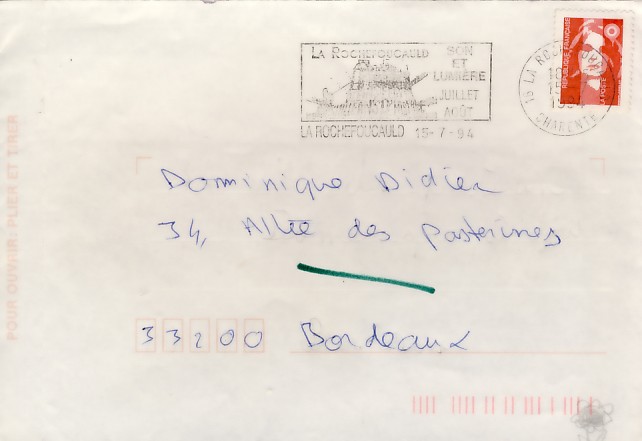 LA ROCHEFOUCAULD SON
ET
LUMIÈRE
JUILLET
AOÛT
LA ROCHEFOUCAULD 15-7-94
16 LA ROCHE
CHARENTE
REPUBLIQUE FRANÇAISE
LA POSTE
POUR OUVRIR: PLIER ET TIRER
Dominique Didier
34, Allée des
33200 Bordeaux